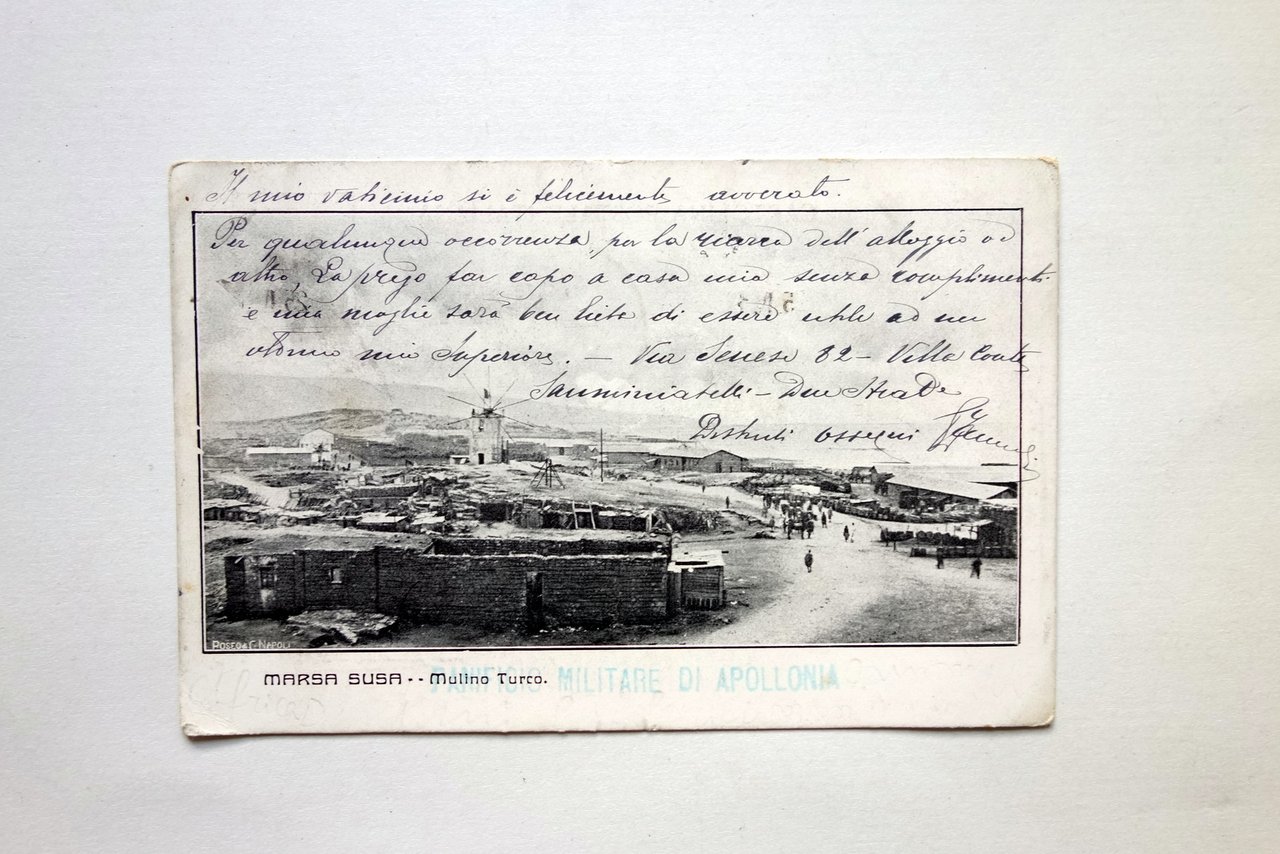 Il mio vaticinio si è felicemente avverato.
Per qualunque occorrenza, per la ricerca dell'alloggio od
altro, La prego far capo a casa mia senza complimenti
e mia moglie sarà ben lieta di essere utile ad un
ottimo mio Superiore. — Via Senese 82 – Villa Conte
Sanminiatelli – Due Strade
Distinti ossequi
POSEO & C. NAPOLI
MARSA SUSA -- Mulino Turco.
PANIFICIO MILITARE DI APOLLONIA